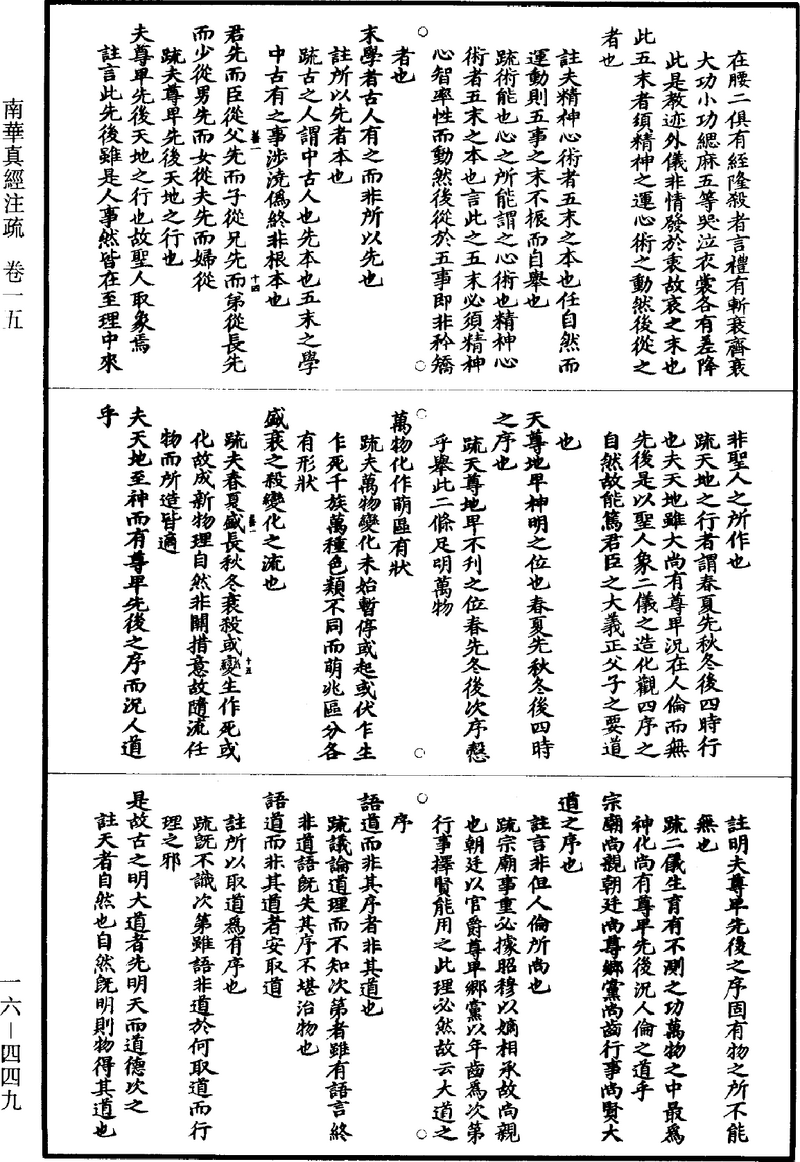 南華真經注疏　卷一五
一六—四四九
在腰二俱有絰隆殺者言禮有斬衰齊衰
大功小功緦麻五等哭泣衣裳各有差降
此是教迹外儀非情發於衷故哀之末也
此五末者須精神之運心術之動然後從之
者也
註夫精神心術者五末之本也任自然而
運動則五事之末不振而自舉也
疏術能也心之所能謂之心術也精神心
術者五末之本也言此之五末必須精神
心智率性而動然後從於五事即非矜矯
者也
末學者古人有之而非所以先也
註所以先者本也
疏古之人謂中古人也先本也五末之學
中古有之事涉澆僞終非根本也
君先而臣從父先而子從兄先而弟從長先
而少從男先而女從夫先而婦從
疏夫尊卑先後天地之行也
夫尊卑先後天地之行也故聖人取象焉
註言此先後雖是人事然皆在至理中來
非聖人之所作也
疏天地之行者謂春夏先秋冬後四時行
也夫天地雖大尚有尊卑況在人倫而無
先後是以聖人象二儀之造化觀四序之
自然故能篤君臣之大義正父子之要道
也
天尊地卑神明之位也春夏先秋冬後四時
之序也
疏天尊地卑不刊之位春先冬後次序慤
乎舉此二條足明萬物
萬物化作萌區有狀
疏夫萬物變化未始暫停或起或伏乍生
乍死千族萬種色類不同而萌兆區分各
有形狀
盛衰之殺變化之流也
疏夫春夏盛長秋冬衰殺或變生作死或
化故成新物理自然非關措意故隨流任
物而所造皆適
夫天地至神而有尊卑先後之序而況人道
乎
註明夫尊卑先後之序固有物之所不能
無也
疏二儀生育有不測之功萬物之中最爲
神化尚有尊卑先後況人倫之道乎
宗廟尚親朝廷尚尊鄉黨尚齒行事尚賢大
道之序也
註言非但人倫所尚也
疏宗廟事重必據昭穆以嫡相承故尚親
也朝廷以官爵尊卑鄉黨以年齒爲次第
行事擇賢能用之此理必然故云大道之
序
語道而非其序者非其道也
疏議論道理而不知次第者雖有語言終
非道語既失其序不堪治物也
語道而非其道者安取道
註所以取道爲有序也
疏既不識次第雖語非道於何取道而行
理之邪
是故古之明大道者先明天而道德次之
註天者自然也自然既明則物得其道也